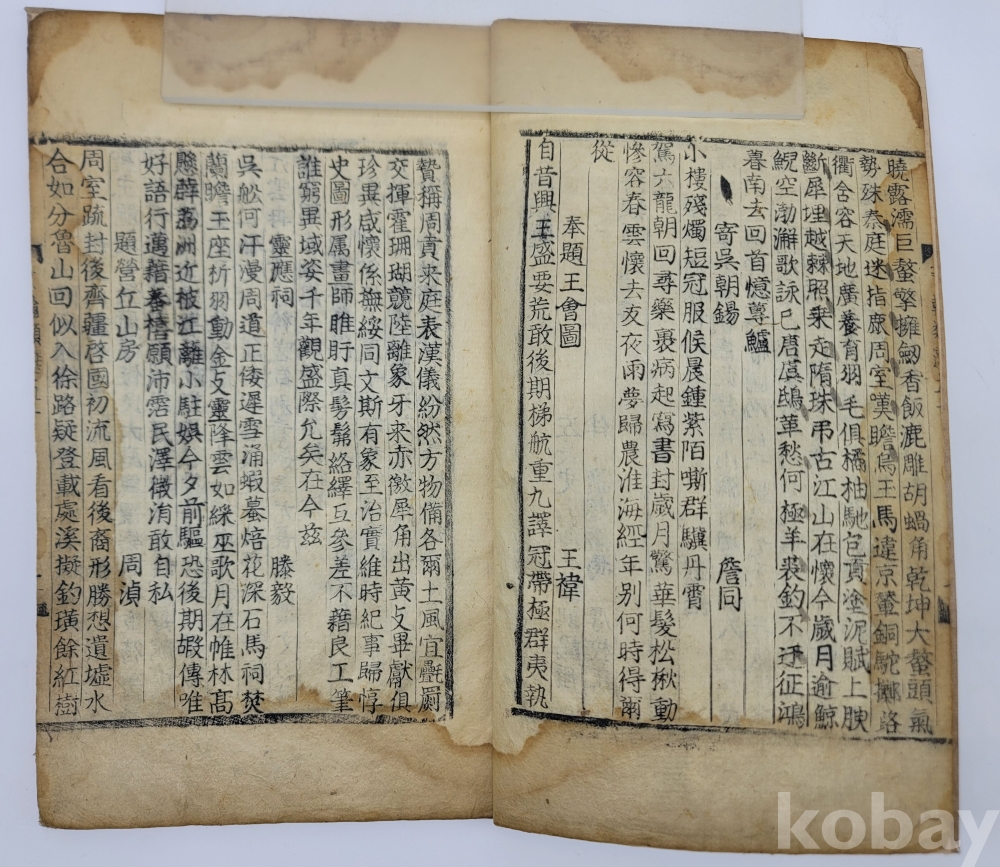 曉露濡巨螯擎擁劒香飯漉雕胡蝸角乾坤大鰲頭氣
勢殊忝庭迷指鹿周室嘆瞻烏王馬違京輦銅駝擲路
衢含容天地廣養育羽毛俱橘柚馳包貢塗泥賦上腴
斷犀埋越棘照乗走隋珠弔古江山在懷今歲月逾鯨
鯢空渤澥歌詠已唐虞鴟革愁何極羊裘釣不迂征鴻
暮南去回首憶蓴鱸
寄吳朝錫 詹同
小樓殘燭短冠服候晨鍾紫陌嘶群驥丹霄
駕六龍朝回尋藥裹病起寫書封歲月驚華髮松楸動
慘容春雲懷去友夜雨夢歸農淮海經年别何時得爾
從
奉題王會圖 王禕
自昔興王盛要荒敢後期梯航重九譯冠帶極群夷執
贄稱周貢来庭表漢儀紛然方物備各爾土風宜氍罽
交揮霍珊瑚競陸離象牙来赤徼犀角出黄支畢獻俱
珍異咸懷係撫綏同文斯有象至治實維時紀事歸惇
史圖形属畫師睢盱真髣髴絡繹互參差不藉良工筆
誰窮異域姿千年觀盛際允矣在今兹
靈應祠 滕毅
吳舩何汗漫周道正倭遲雪涌蝦蟇焙花深石馬祠焚
蘭瞻玉座折羽動金支靈降雲如綵巫歌月在帷林髙
懸薜荔洲近被江蘺小駐娯今夕前驅恐後期嘏傳唯
好語行邁藉養禧願沛霑民澤微消敢自私
題營丘山房 周湞
周室疏封後齊疆啓國初流風看後裔形勝想遺墟水
合如分魯山回似入徐路疑登載處溪擬釣璜餘紅樹
kobay